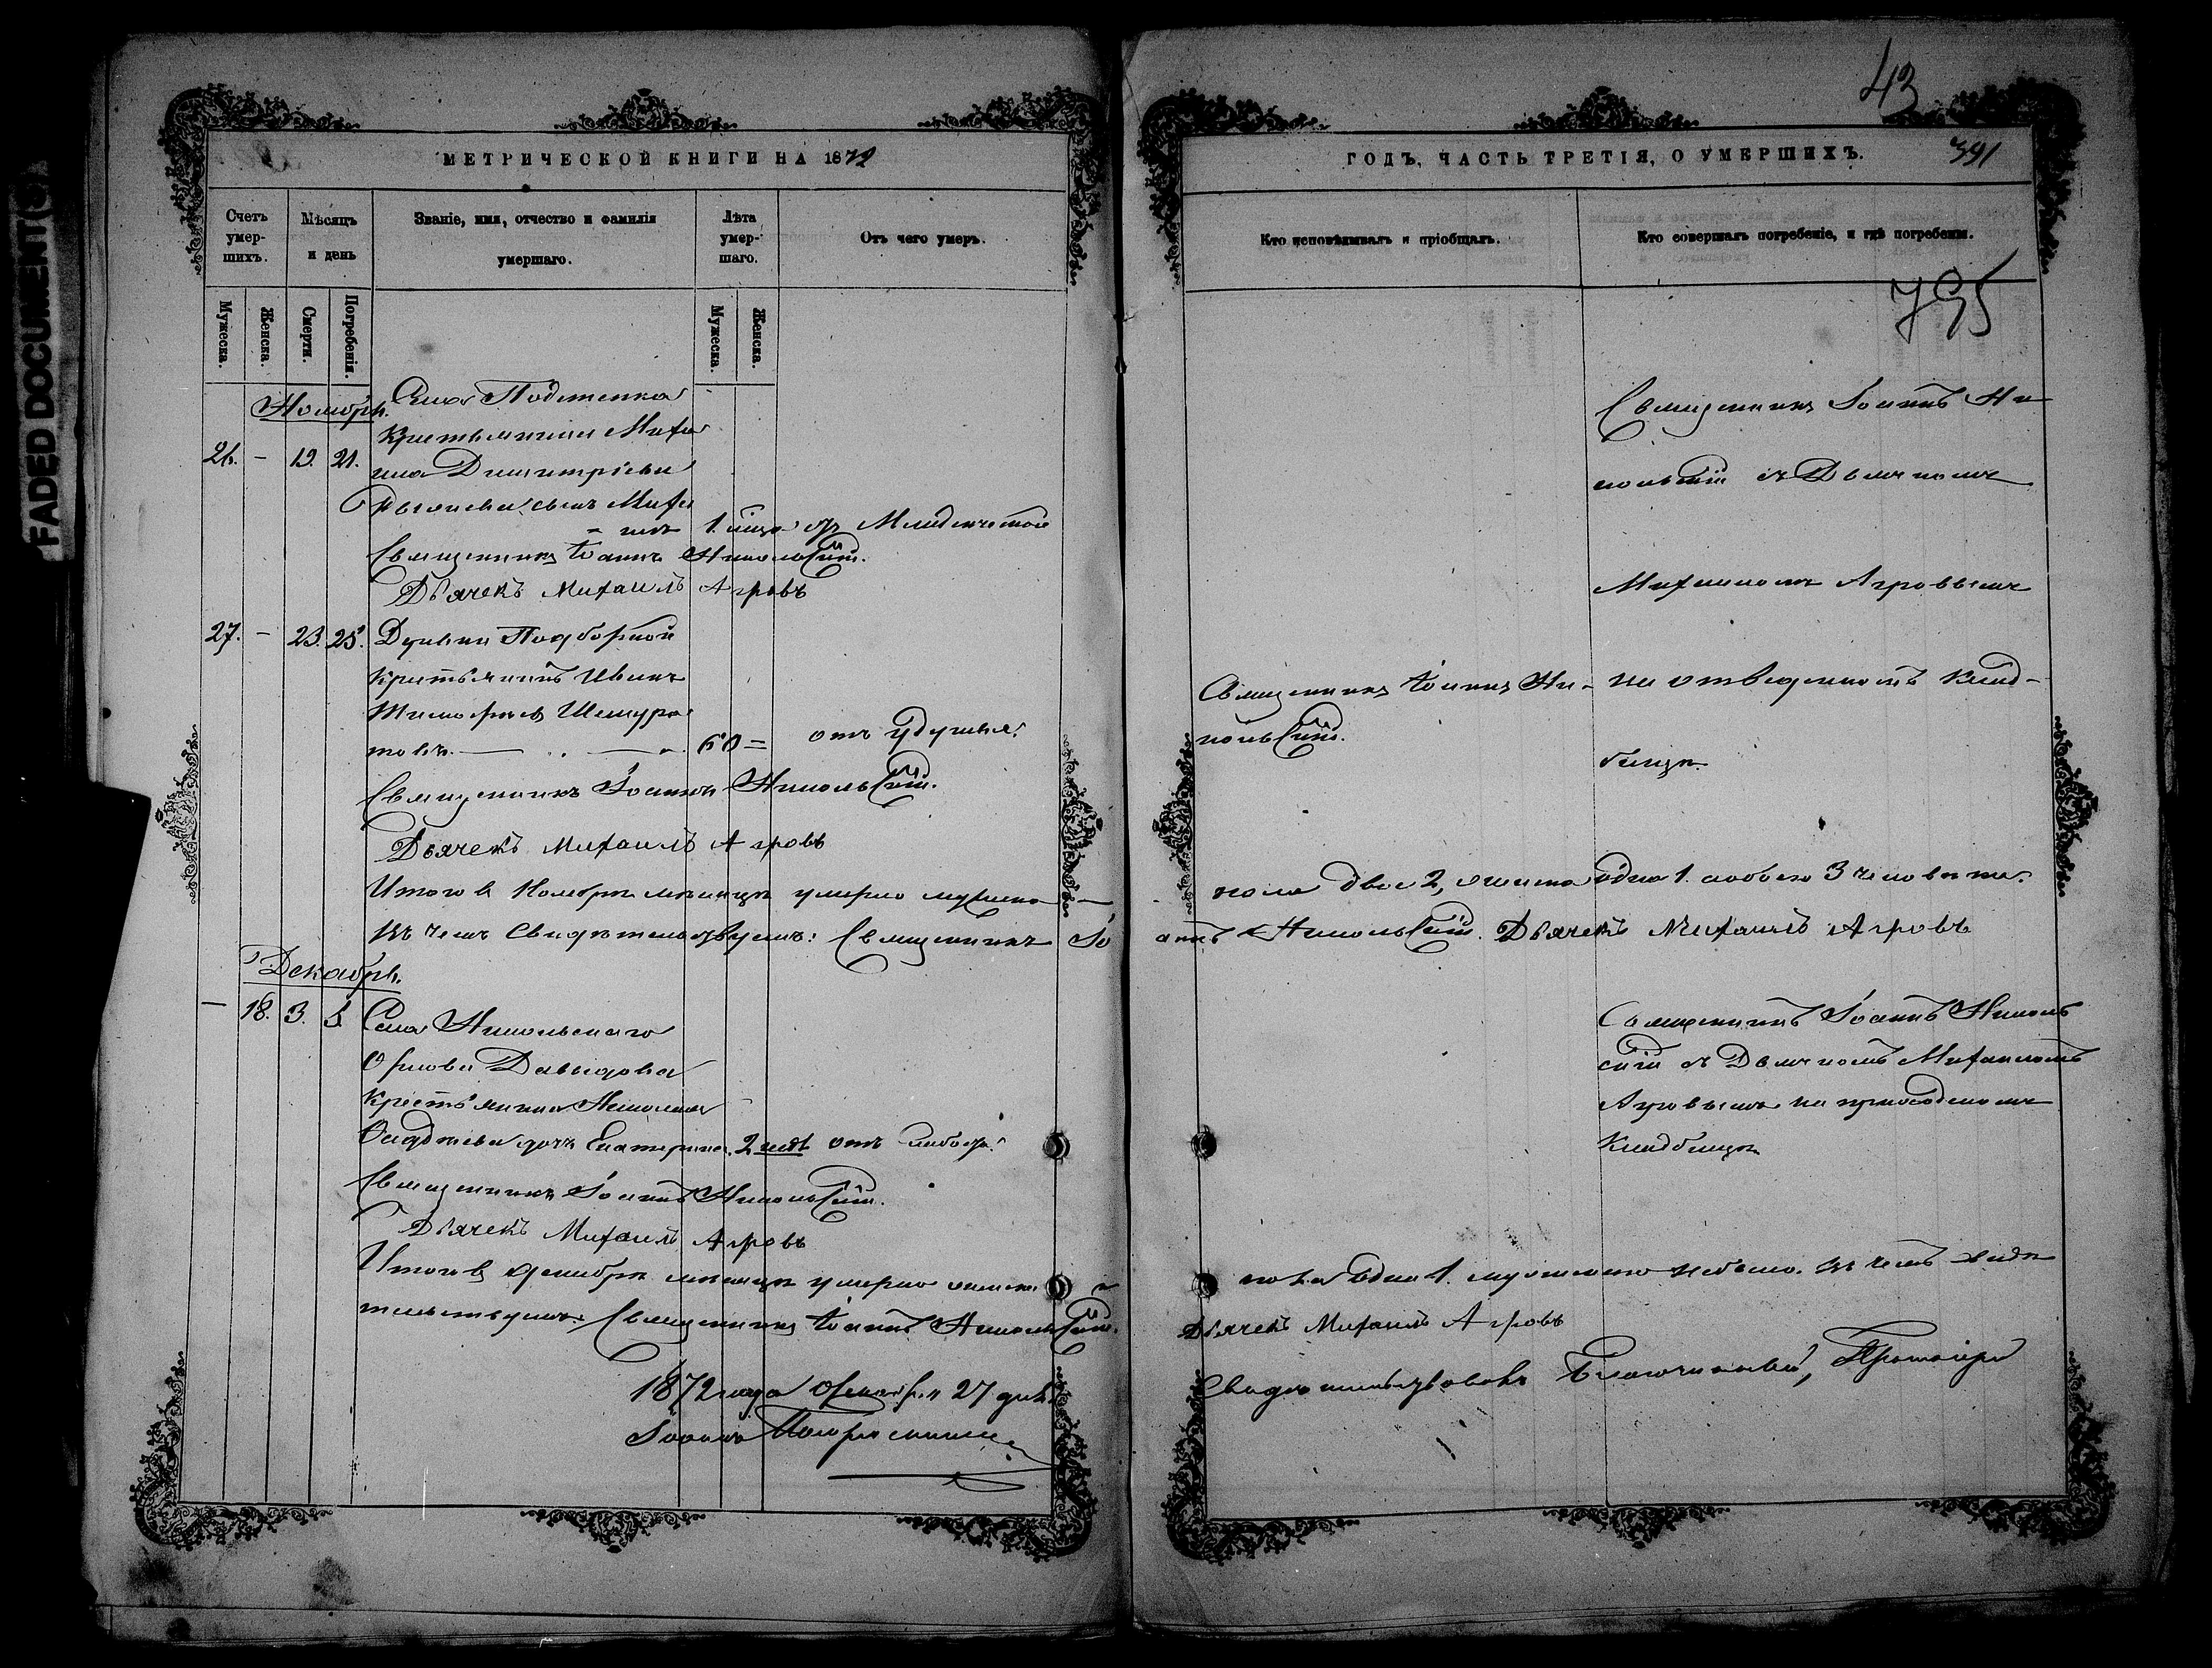 43
FADED DOCUMENT(S)
МЕТРИЧЕСКОЙ КНИГИ НА 1872
ГОДЪ, ЧАСТЬ ТРЕТІЯ, О УМЕРШИХЪ.
391
Счетъ умер-шихъ.
Мѣсяцъ и день
Званіе, имя, отчество и фамилія умершаго.
Лѣта умер-шаго.
Отъ чего умеръ.
Кто исповѣдывалъ и пріобщалъ.
Кто совершалъ погребеніе, и гдѣ погребены.
Мужеска.
Женска.
Смерти.
Погребенія.
Мужеска.
Женска.
795
Ноябрь.
Села
26. – 19. 21.
Крестьянина Миха
ила Димитріева
сынъ Миха
= илъ 1. мѣся отъ Младенческой
Священникъ Іоаннъ Никольскій.
Дьячекъ Михаилъ Агровъ
Священникъ Іоаннъ Ни
кольскій съ Дьячкомъ
Михаиломъ Агровымъ
27. – 23. 25. Деревни Подборной
Крестьянинъ Иванъ
Тимофѣевъ Шемура
товъ. 60 = отъ удушья.
Священникъ Іоаннъ Никольскій.
Дьячекъ Михаилъ Агровъ
Священникъ Іоаннъ Ни-
кольскій.
на отведенномъ клад-
бищѣ.
Итого въ Ноябрѣ мѣсяцѣ умерло мужеска
пола двое 2, женска одна 1. а обоего 3 человѣка.
Въ чемъ свидѣтельствуемъ: Священникъ Іо
аннъ Никольскій. Дьячекъ Михаилъ Агровъ
Декабрь.
– 18. 3. 5. Села Никольскаго
Орлова Давыдова
Крестьянина Николая
дочь Екатерина. 2 лѣтъ отъ
Священникъ Іоаннъ Никольскій.
Дьячекъ Михаилъ Агровъ
Священникъ Іоаннъ Николь
скій съ Дьячкомъ Михаиломъ
Агровымъ на приходскомъ
Кладбищѣ
Итого въ Декабрѣ мѣсяцѣ умерло женска
пола одна 1. мужеска небыло. Въ чемъ свидѣ
тельствуемъ: Священникъ Іоаннъ Никольскій.
Дьячекъ Михаилъ Агровъ
Свидѣтельствовалъ Благочинный, Протоіерей
1872 года Декабря 27 дня.
Іоаннъ